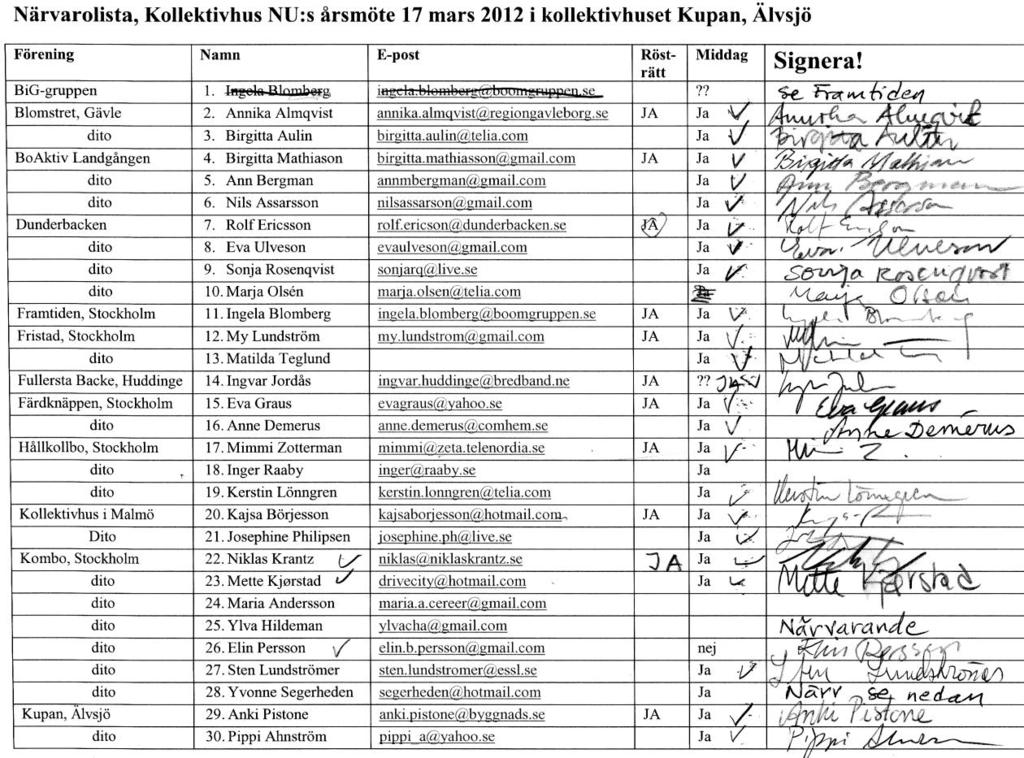 Närvarolista, Kollektivhus NU:s årsmöte 17 mars 2012 i kollektivhuset Kupan, Älvsjö
Förening Namn E-post Röst-rätt Middag Signera!
BiG-gruppen 1. Ingela Blomberg ingela.blomberg@boomgruppen.se ?? se Framtiden
Blomstret, Gävle 2. Annika Almqvist annika.almqvist@regiongavleborg.se JA Ja Annika Almqvist
dito 3. Birgitta Aulin birgitta.aulin@telia.com Ja Birgitta Aulin
BoAktiv Landgången 4. Birgitta Mathiason birgitta.mathiasson@gmail.com JA Ja Birgitta Mathiason
dito 5. Ann Bergman annmbergman@gmail.com Ja Ann Bergman
dito 6. Nils Assarsson nilsassarson@gmail.com Ja Nils Assarson
Dunderbacken 7. Rolf Ericsson rolf.ericson@dunderbacken.se JA Ja Rolf Ericson
dito 8. Eva Ulveson evaulveson@gmail.com Ja Eva Ulveson
dito 9. Sonja Rosenqvist sonjarq@live.se Ja Sonja Rosenqvist
dito 10. Marja Olsén marja.olsen@telia.com Marja Olsén
Framtiden, Stockholm 11. Ingela Blomberg ingela.blomberg@boomgruppen.se JA Ja Ingela Blomberg
Fristad, Stockholm 12. My Lundström my.lundstrom@gmail.com JA Ja
dito 13. Matilda Teglund Ja
Fullersta Backe, Huddinge 14. Ingvar Jordås ingvar.huddinge@bredband.ne JA ?? JA
Färdknäppen, Stockholm 15. Eva Graus evagraus@yahoo.se JA Ja Eva Graus
dito 16. Anne Demerus anne.demerus@comhem.se Ja Anne Demérus
Hållkollbo, Stockholm 17. Mimmi Zotterman mimmi@zeta.telenordia.se JA Ja
dito 18. Inger Raaby inger@raaby.se Ja
dito 19. Kerstin Lönngren kerstin.lonngren@telia.com Ja Kerstin Lönngren
Kollektivhus i Malmö 20. Kajsa Börjesson kajsaborjesson@hotmail.com JA Ja
Dito 21. Josephine Philipsen josephine.ph@live.se Ja
Kombo, Stockholm 22. Niklas Krantz niklas@niklaskrantz.se JA Ja
dito 23. Mette Kjørstad drivecity@hotmail.com Ja Mette Kjørstad
dito 24. Maria Andersson maria.a.cereer@gmail.com
dito 25. Ylva Hildeman ylvacha@gmail.com Närvarande
dito 26. Elin Persson elin.b.persson@gmail.com nej Elin Persson
dito 27. Sten Lundströmer sten.lundstromer@essl.se Ja Sten Lundströmer
dito 28. Yvonne Segerheden segerheden@hotmail.com Ja Närv se nedan
Kupan, Älvsjö 29. Anki Pistone anki.pistone@byggnads.se JA Ja Anki Pistone
dito 30. Pippi Ahnström pippi_a@yahoo.se Ja Pippi